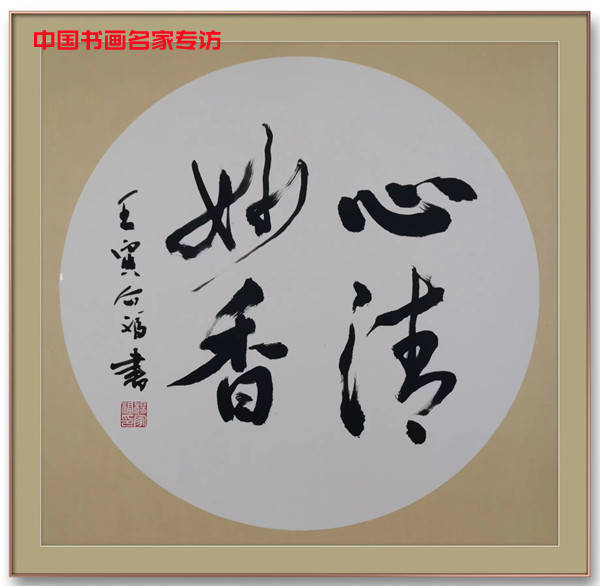 中国书画名家专访
心清
妙香
壬寅 福書